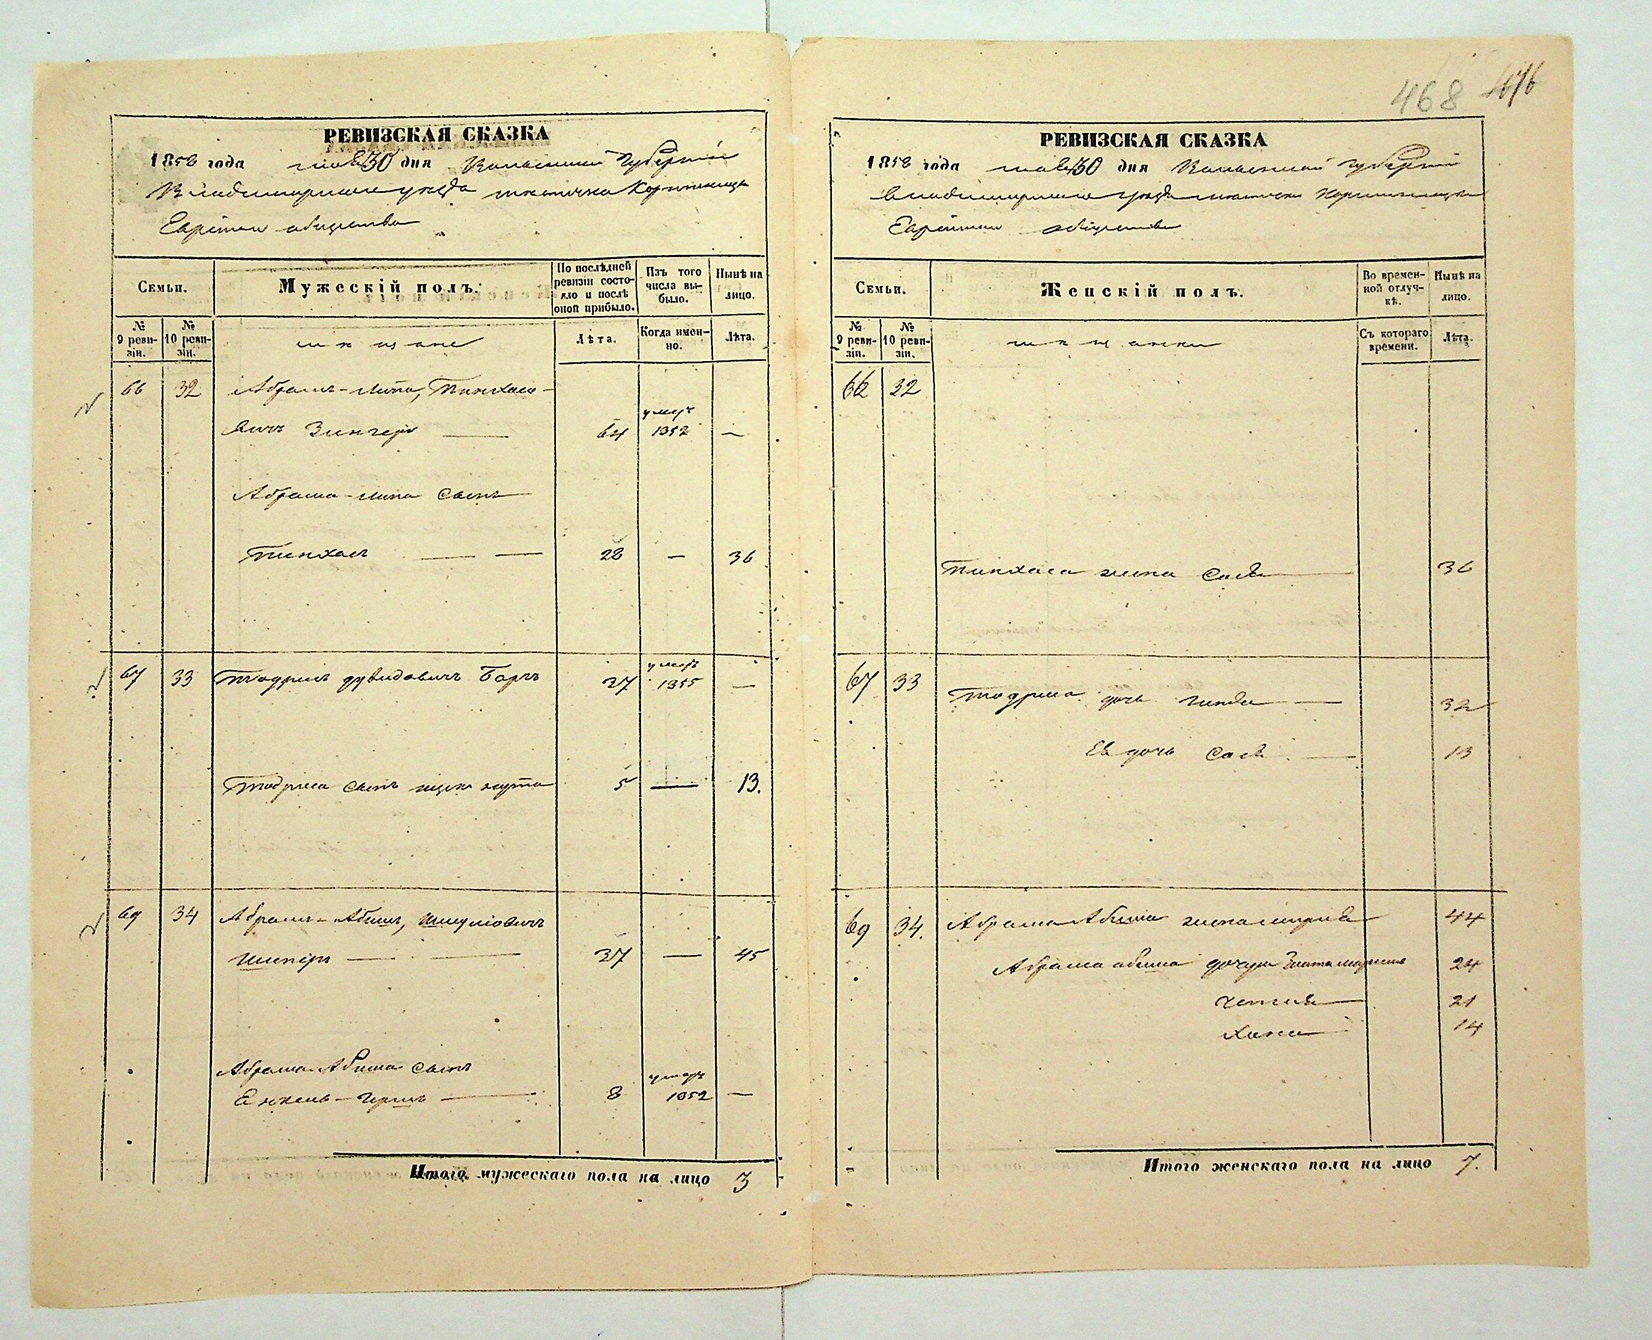 468 476
РЕВИЗСКАЯ СКАЗКА
1858 года мая 30 дня Волынской Губернии
Владимирского уезда местечка Корытница
Еврейского общества
Семьи.
Мужескій полъ.
По послѣдней ревизіи состояло и послѣ оной прибыло.
Изъ того числа выбыло.
Нынѣ на лицо.
№ 9 ревизіи.
№ 10 ревизіи.
мещане
Лѣта.
Когда именно.
Лѣта.
66 32 Абрамъ-Липа, Пинхасо-
вичъ Зингеръ 64 умеръ 1852 —
Абрама-Липа сынъ
Пинхасъ 28 — 36
67 33 Тодрисъ Дувидовичъ Боръ 27 умеръ 1855 —
Тодриса сынъ 5 — 13.
69 34 Абрамъ-Абишъ, Шмулiовичъ
Шниперъ 37 — 45
Абрама-Абиша сынъ
Енкель-Гершъ 8 умеръ 1852 —
Итого мужескаго пола на лицо 3
РЕВИЗСКАЯ СКАЗКА
1858 года мая 30 дня Волынской Губернии
Владимирского уезда местечка Корытница
Еврейского общества
Семьи.
Женскій полъ.
Во временной отлучкѣ.
Нынѣ на лицо.
№ 9 ревизіи.
№ 10 ревизіи.
мещанки
Съ котораго времени.
Лѣта.
66 32
Пинхаса жена Сося 36
67 33 Тодриса дочь Гинда 32
Ея дочь Сося 13
69 34. Абрама Абиша жена 44
Абрама Абиша дочери 24
21
Хана 14
Итого женскаго пола на лицо 7.